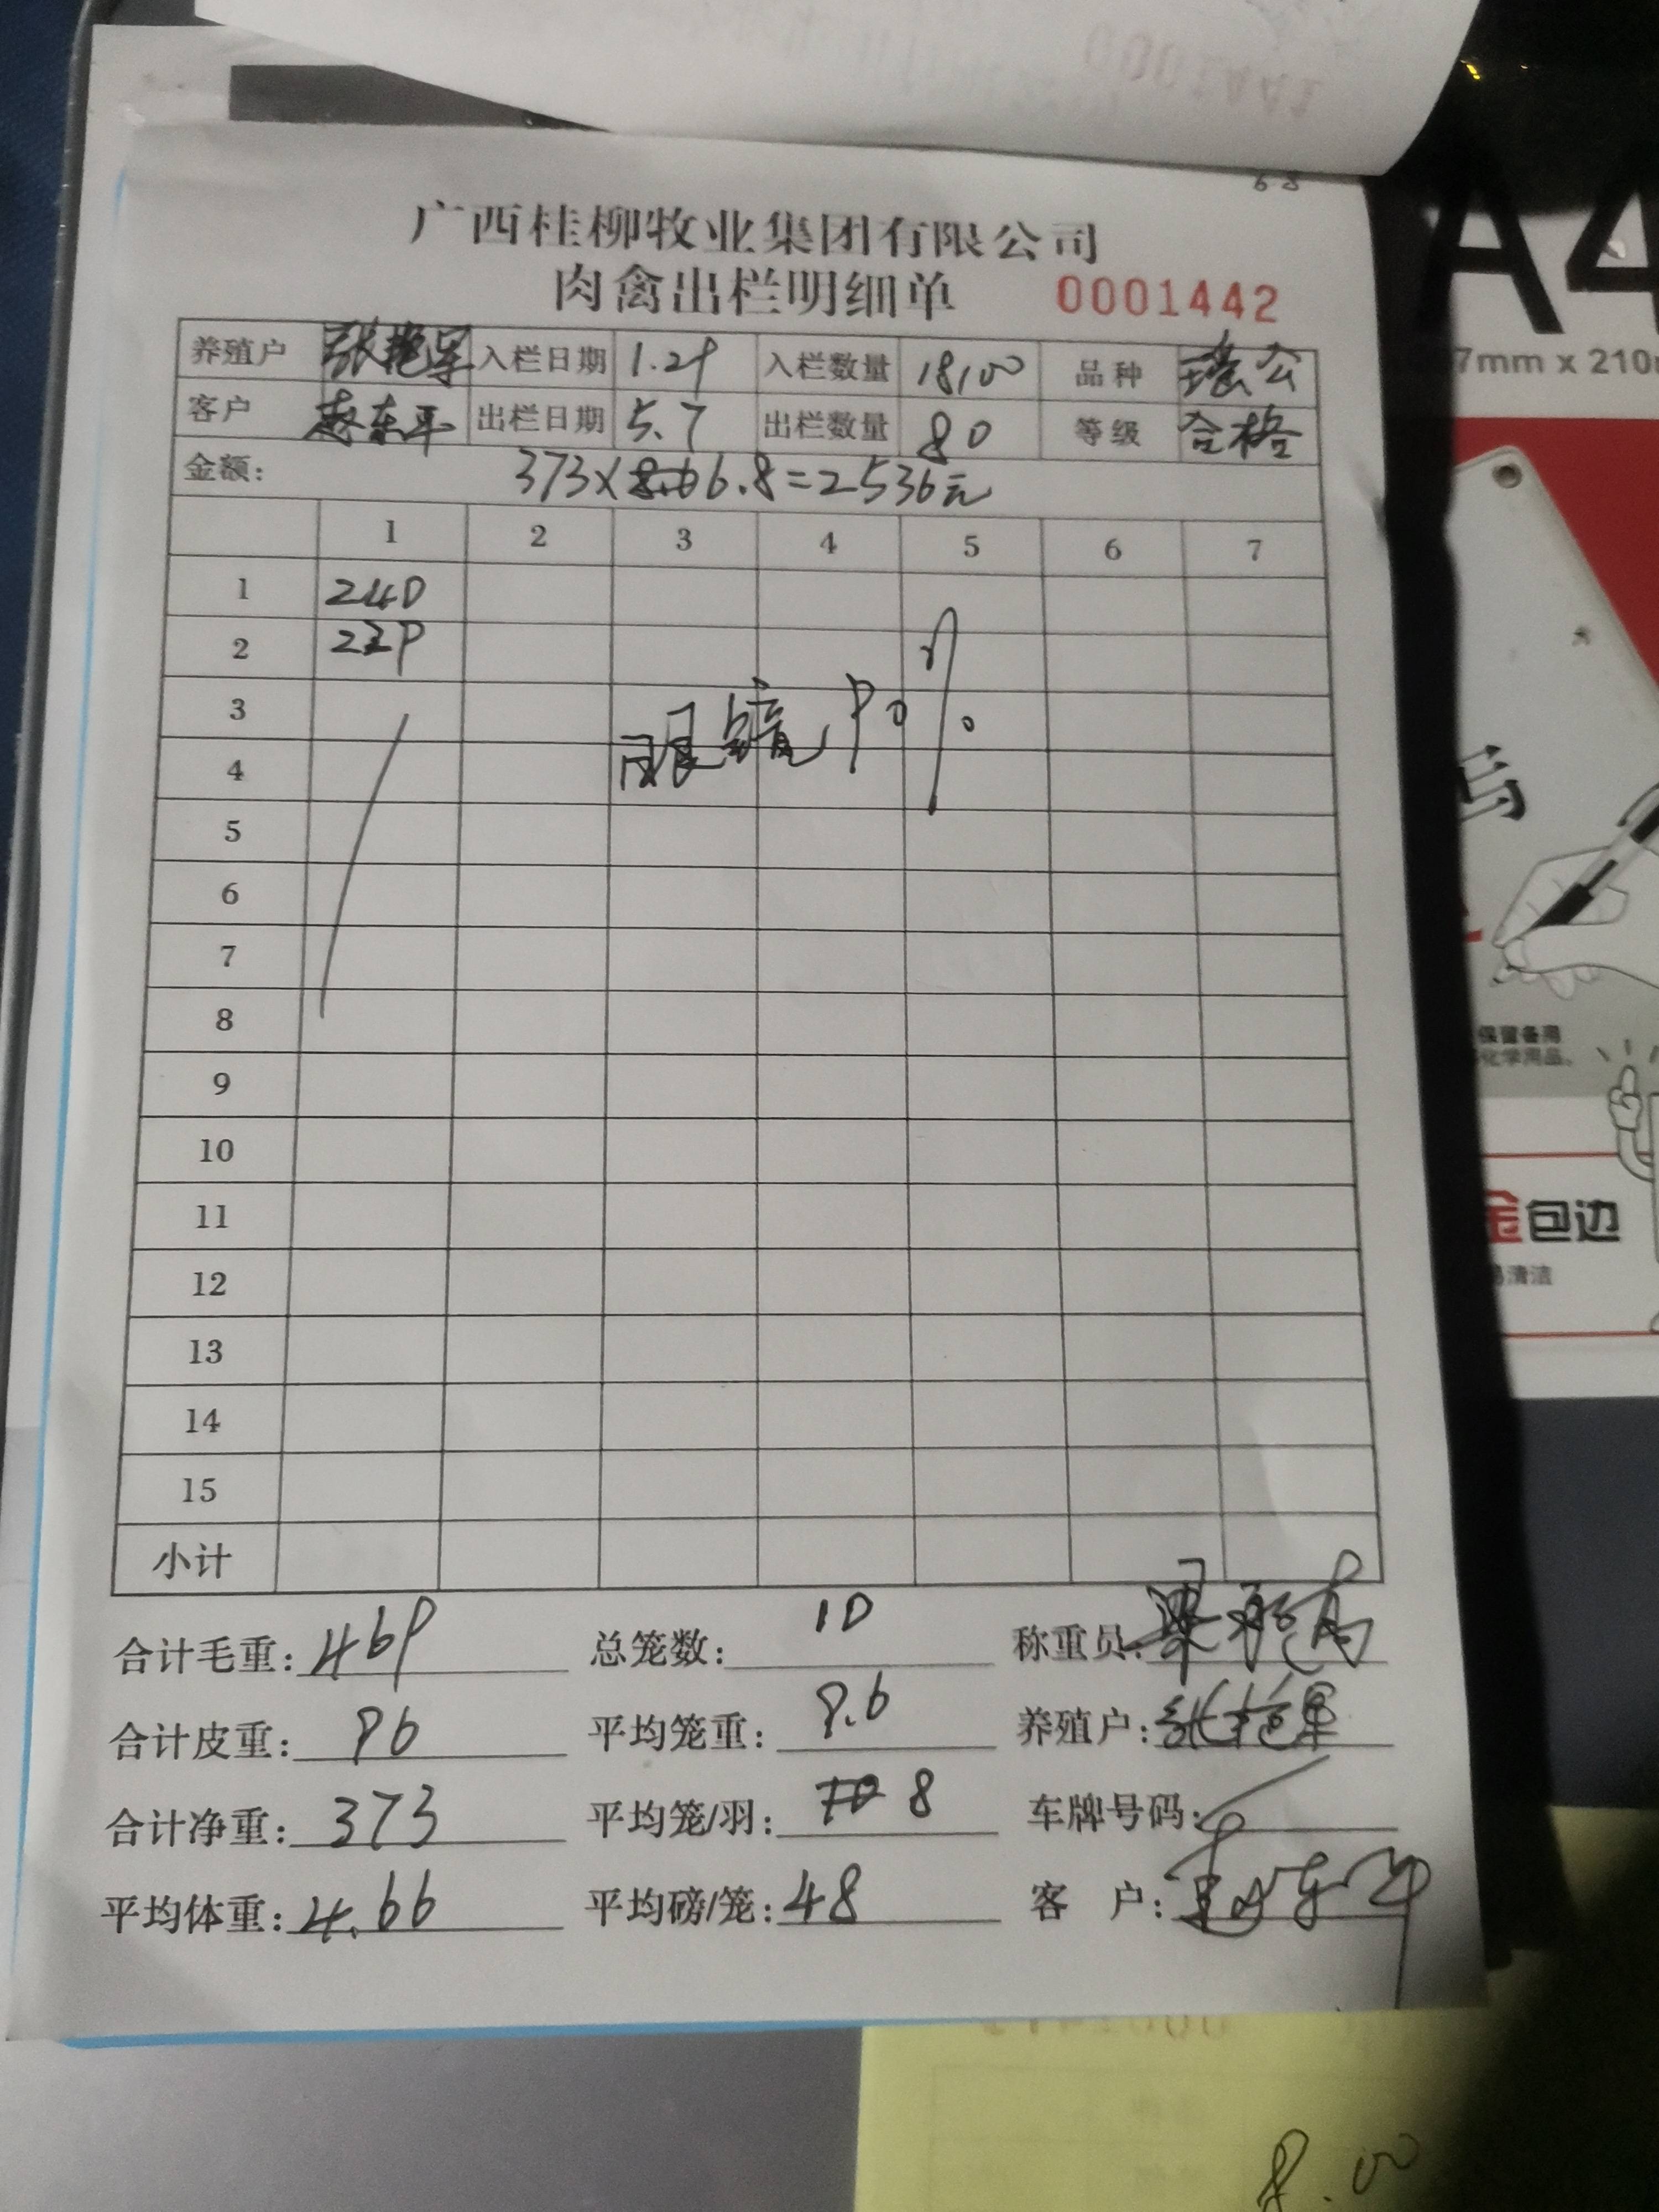 0001441
68
广西桂柳牧业集团有限公司
肉禽出栏明细单 0001442
养殖户 张艳军 入栏日期 1.29 入栏数量 18100 品种 瑶公
客户 赵东平 出栏日期 5.7 出栏数量 80 等级 合格
金额: 373×6.8=2536元
1 2 3 4 5 6 7
1 240
2 229
3
4 眼镜90%
5
6
7
8
9
10
11
12
13
14
15
小计
合计毛重: 469 总笼数: 10 称重员:
合计皮重: 96 平均笼重: 9.6 养殖户: 张艳军
合计净重: 373 平均笼/羽: 8 车牌号码:
平均体重: 4.66 平均磅/笼: 48 客 户: 赵东平
A4
7mm x 210
写
保留备用
化学用品。
金包边
易清洁
8.00